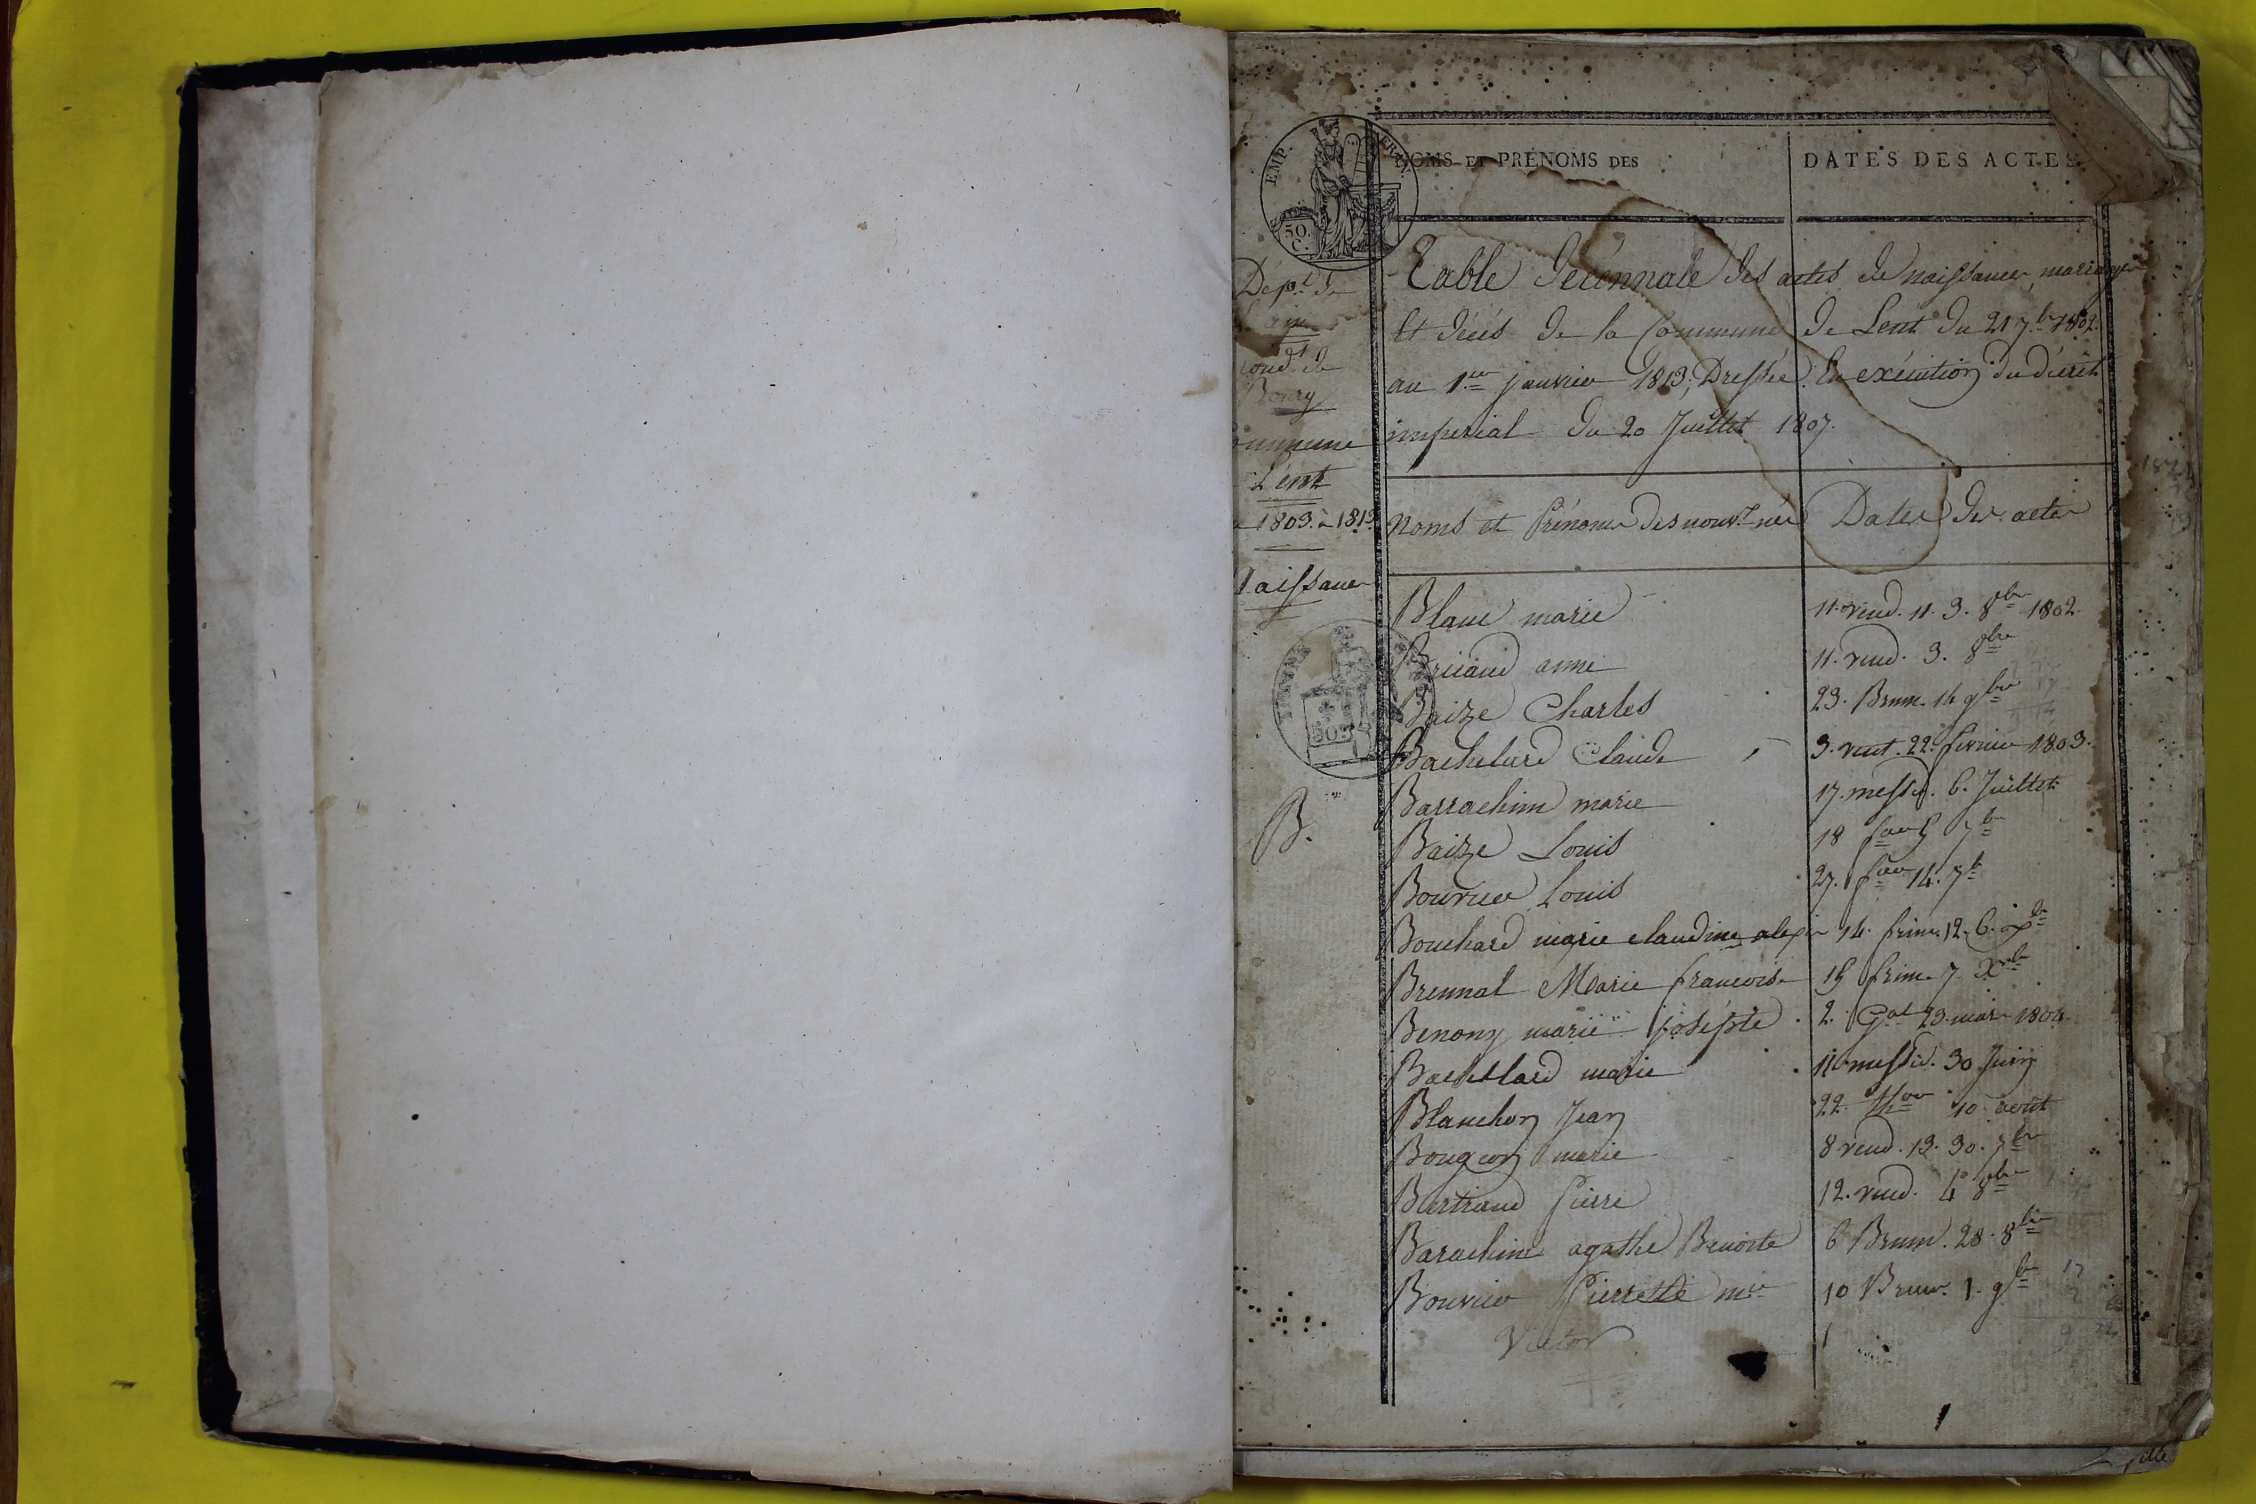 EMP. FRAN.
50.
C.
NOMS ET PRÉNOMS DES
DATES DES ACTES
Dépt de
ain
ond.t de
Bourg
ommune
Lent
1803 à 1813
Naissance
B.
Table décennale des actes de naissance, mariage
Et décès de la Commune de Lent du 21 7.bre 1802.
au 1.er janvier 1813, Dressée En exécution du décret
imperial du 20 Juillet 1807.
Noms et Prénoms des nouv.x nés
Dates des actes
Blanc marie 11. vend. 11. 3. 8bre 1802.
Bricaud anne 11. vend. 3. 8bre
Baize Charles 23. Brum. 14 9bre
Bachelard Claude 3. vent. 22. fevrier 1803.
Barrachin marie 17. messid. 6. Juillet
Baize Louis 18 5 7b
Bouvier Louis 27. 14. 7b
Bouchard marie claudine 14. frim. 12. 6.
Brennat Marie francoise 15 frim. 7.
Benony marie josephte 2. Gal 23. mars 1804
Bachellard marie 11 messid. 30 Juin
Blanchon Jean 22. 10 août
Bougeon marie 8. vend. 13. 30. 7bre
Bertrand Pierre 12. vend. 4 8bre
Barachin agathe Benoite 6 Brum. 28. 8bre
Bouvier Pierrette mie 10 Brum. 1. 9b
Victor
1